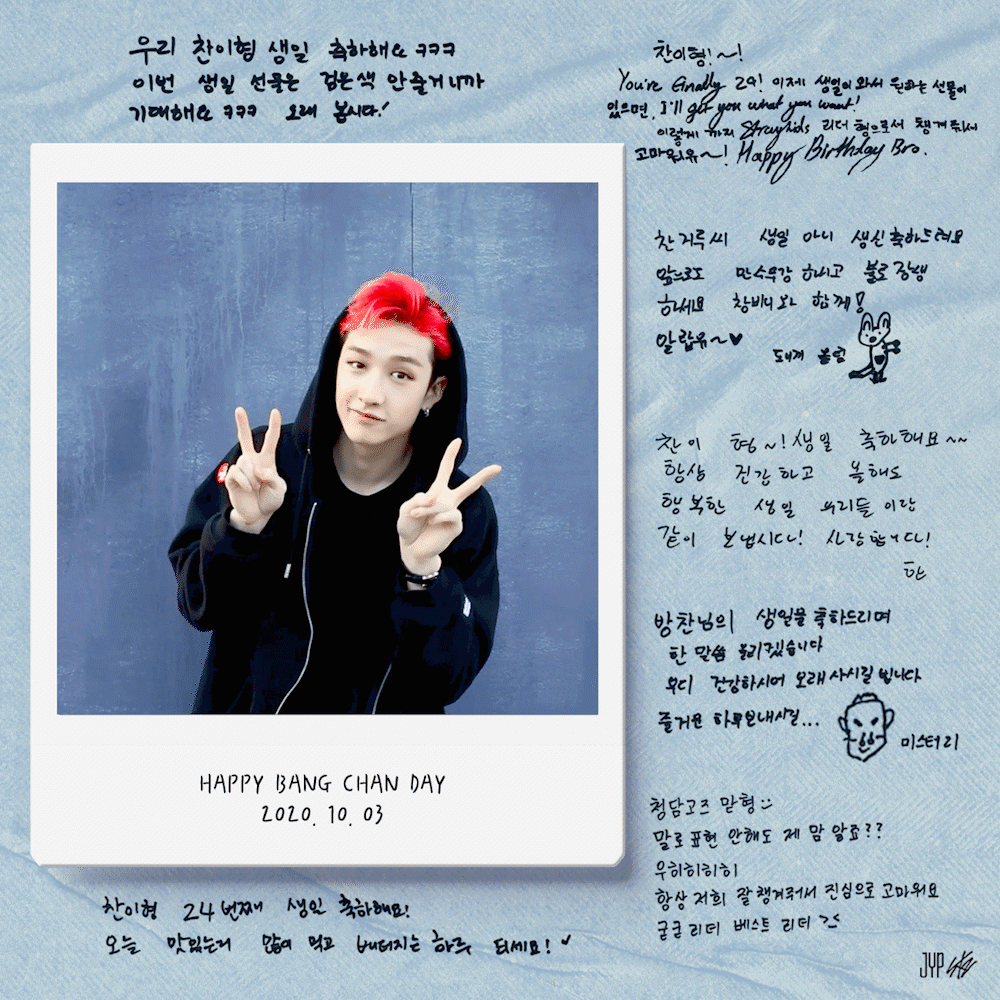 우리 찬이형 생일 축하해요 ㅋㅋㅋ
이번 생일 선물은 검은색 안줄거니까
기대해요 ㅋㅋㅋ 오래 봅시다!
찬이형!~!
You're finally 24! 이제 생일이 와서 원하는 선물이
있으면, I'll get you what you want!
이렇게 까지 Straykids 리더 형으로서 챙겨줘서
고마워유~! Happy Birthday Bro.
찬거루씨 생일 아니 생신축하드려요
앞으로도 만수무강 하시고 불로장생
하세요 창비니와 함께!
알랍유~♥
도비께 올림
찬이 형~! 생일 축하해요~~
항상 건강하고 올해도
행복한 생일 우리들이랑
같이 보냅시다! 사랑합니다!
한
방찬님의 생일을 축하드리며
한 말씀 올리겠습니다
부디 건강하시며 오래사시길 빕니다
즐거운 하루보내시길...
미스터리
청담고즈 맏형
말로표현 안해도 제 맘 알죠??
우히히히히
항상 저희 잘챙겨줘서 진심으로 고마워요
굳굳리더 베스트 리더
HAPPY BANG CHAN DAY
2020. 10. 03
찬이형 24번째 생일 축하해요!
오늘 맛있는거 많이 먹고 배터지는 하루 되세요!
JYP